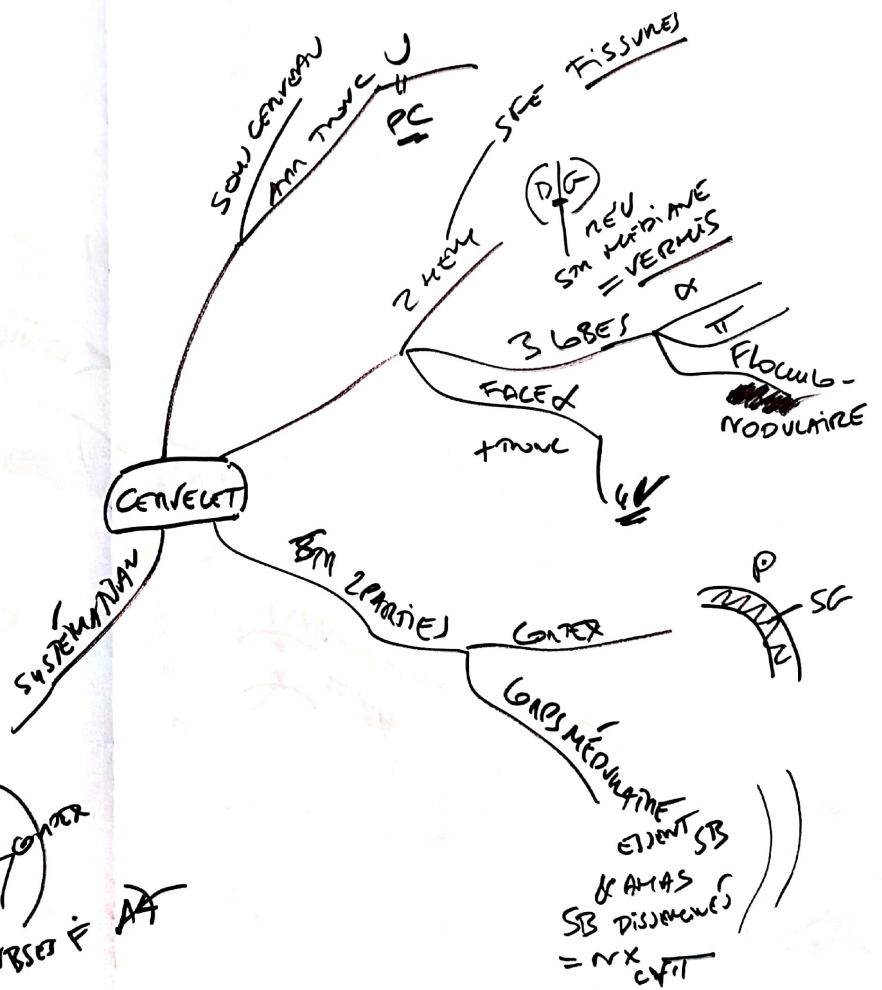 SOUS CERVEAU
ARR TRONC
U
PC
SFCE FISSURES
2 HEM
D G
RÉU
STR MÉDIANE
= VERMIS
3 LOBES
α
π
FLOCCULO-
NODULAIRE
FACE α
+ TRONC
4V
CERVELET
2 PARTIES
CORTEX
P
SG
CORPS MÉDULLAIRE
ESSENT SB
& AMAS
SB DISSÉMINÉS
= NX
SYSTÉMATISAN
CORTEX